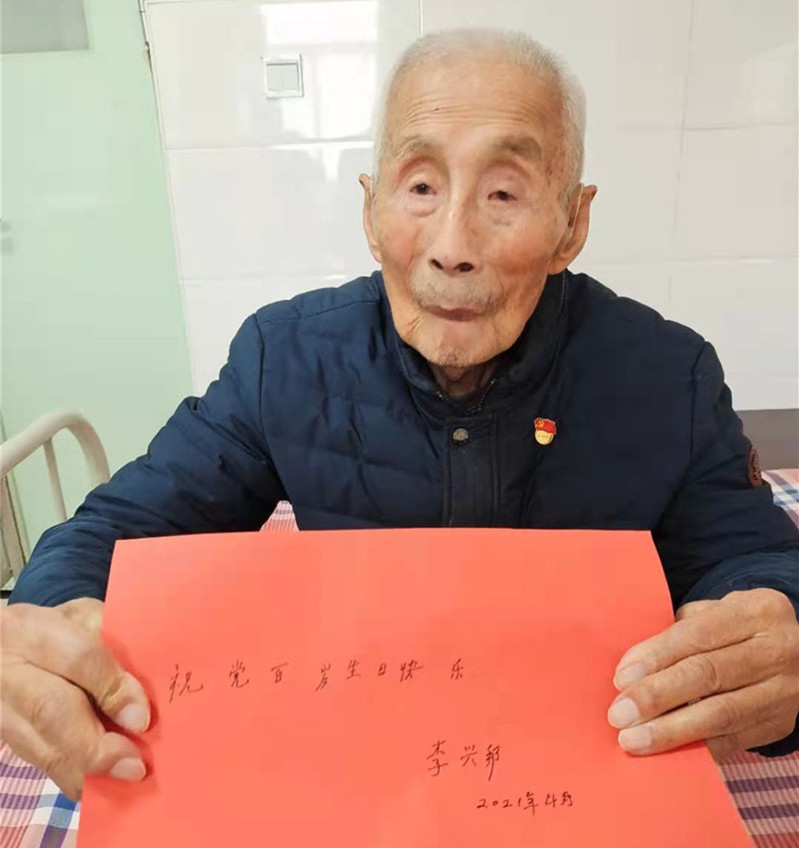 祝党百岁生日快乐
李兴邦
2021年4月